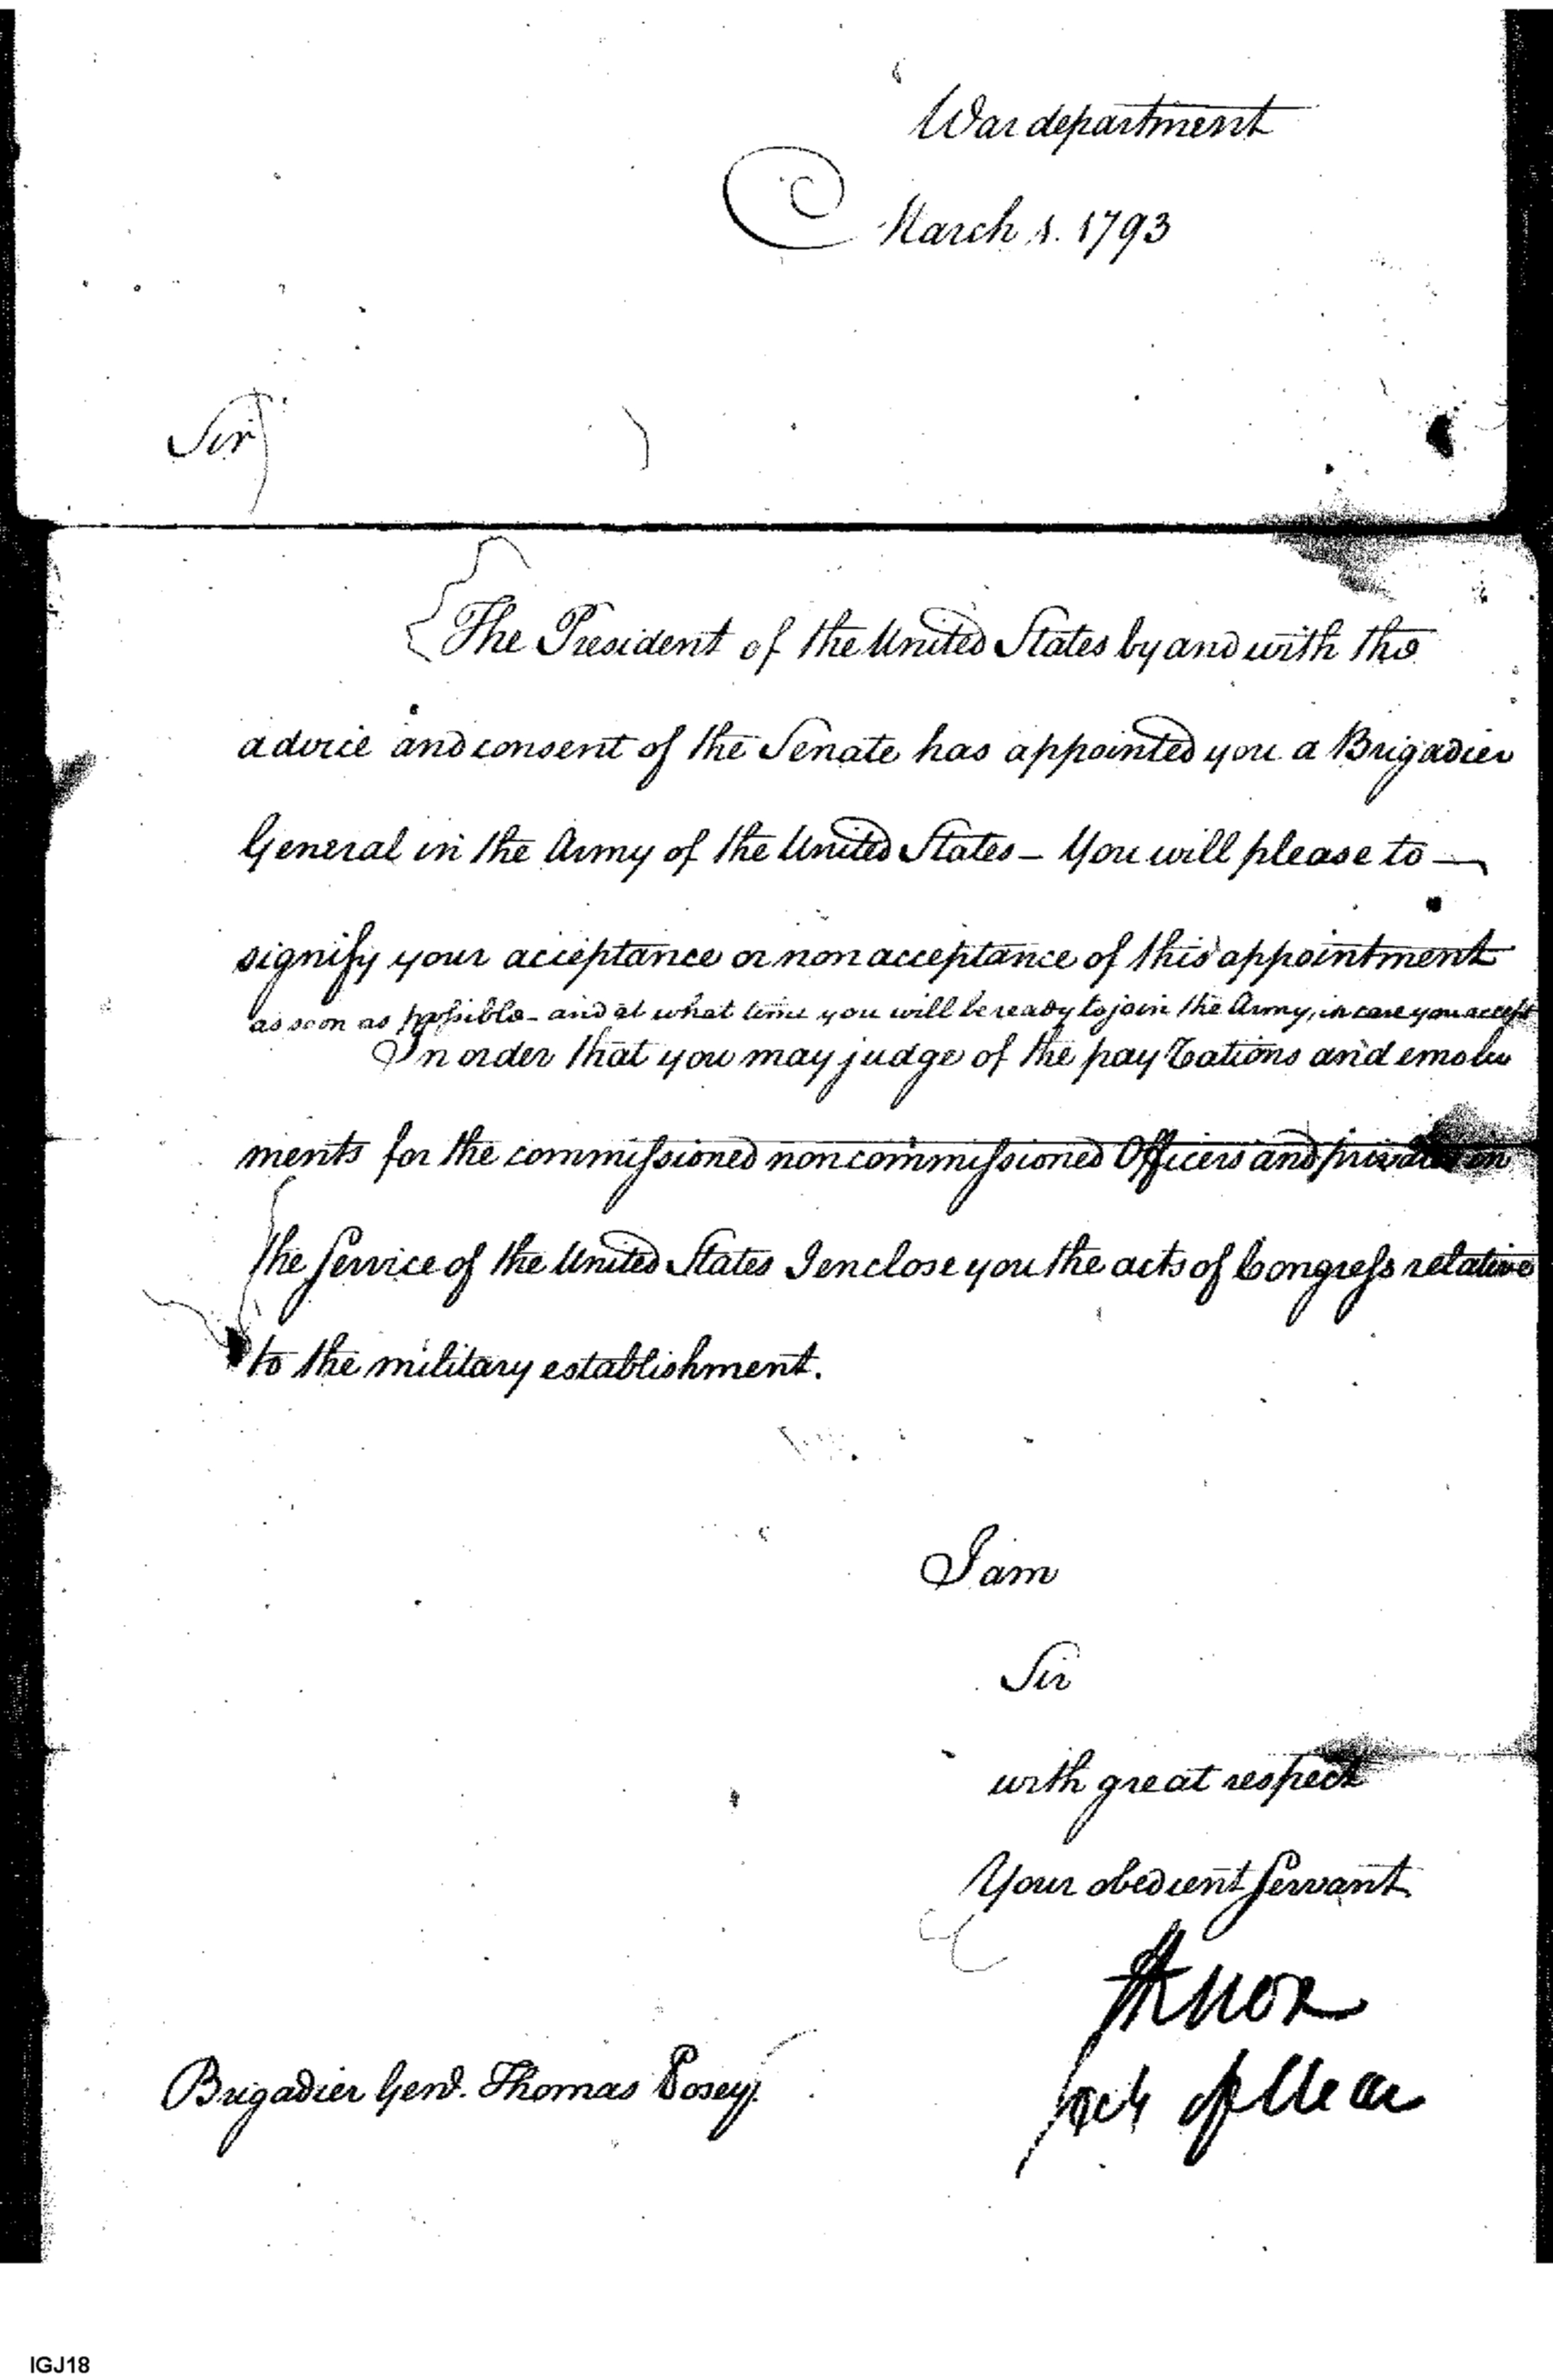 War department
March 1. 1793
Sir
The President of the United States by and with the
advice and consent of the Senate has appointed you a Brigadier
General in the Army of the United States – You will please to —
signify your acceptance or non acceptance of this appointment
as soon as possible – and at what time you will be ready to join the Army, in case you accept
In order that you may judge of the pay rations and emolu
ments for the commissioned noncommissioned Officers and privates in
the Service of the United States I enclose you the acts of Congress relative
to the military establishment.
I am
Sir
with great respect
Your obedient Servant
HKnox
secy of War
Brigadier Genl. Thomas Posey.
IGJ18